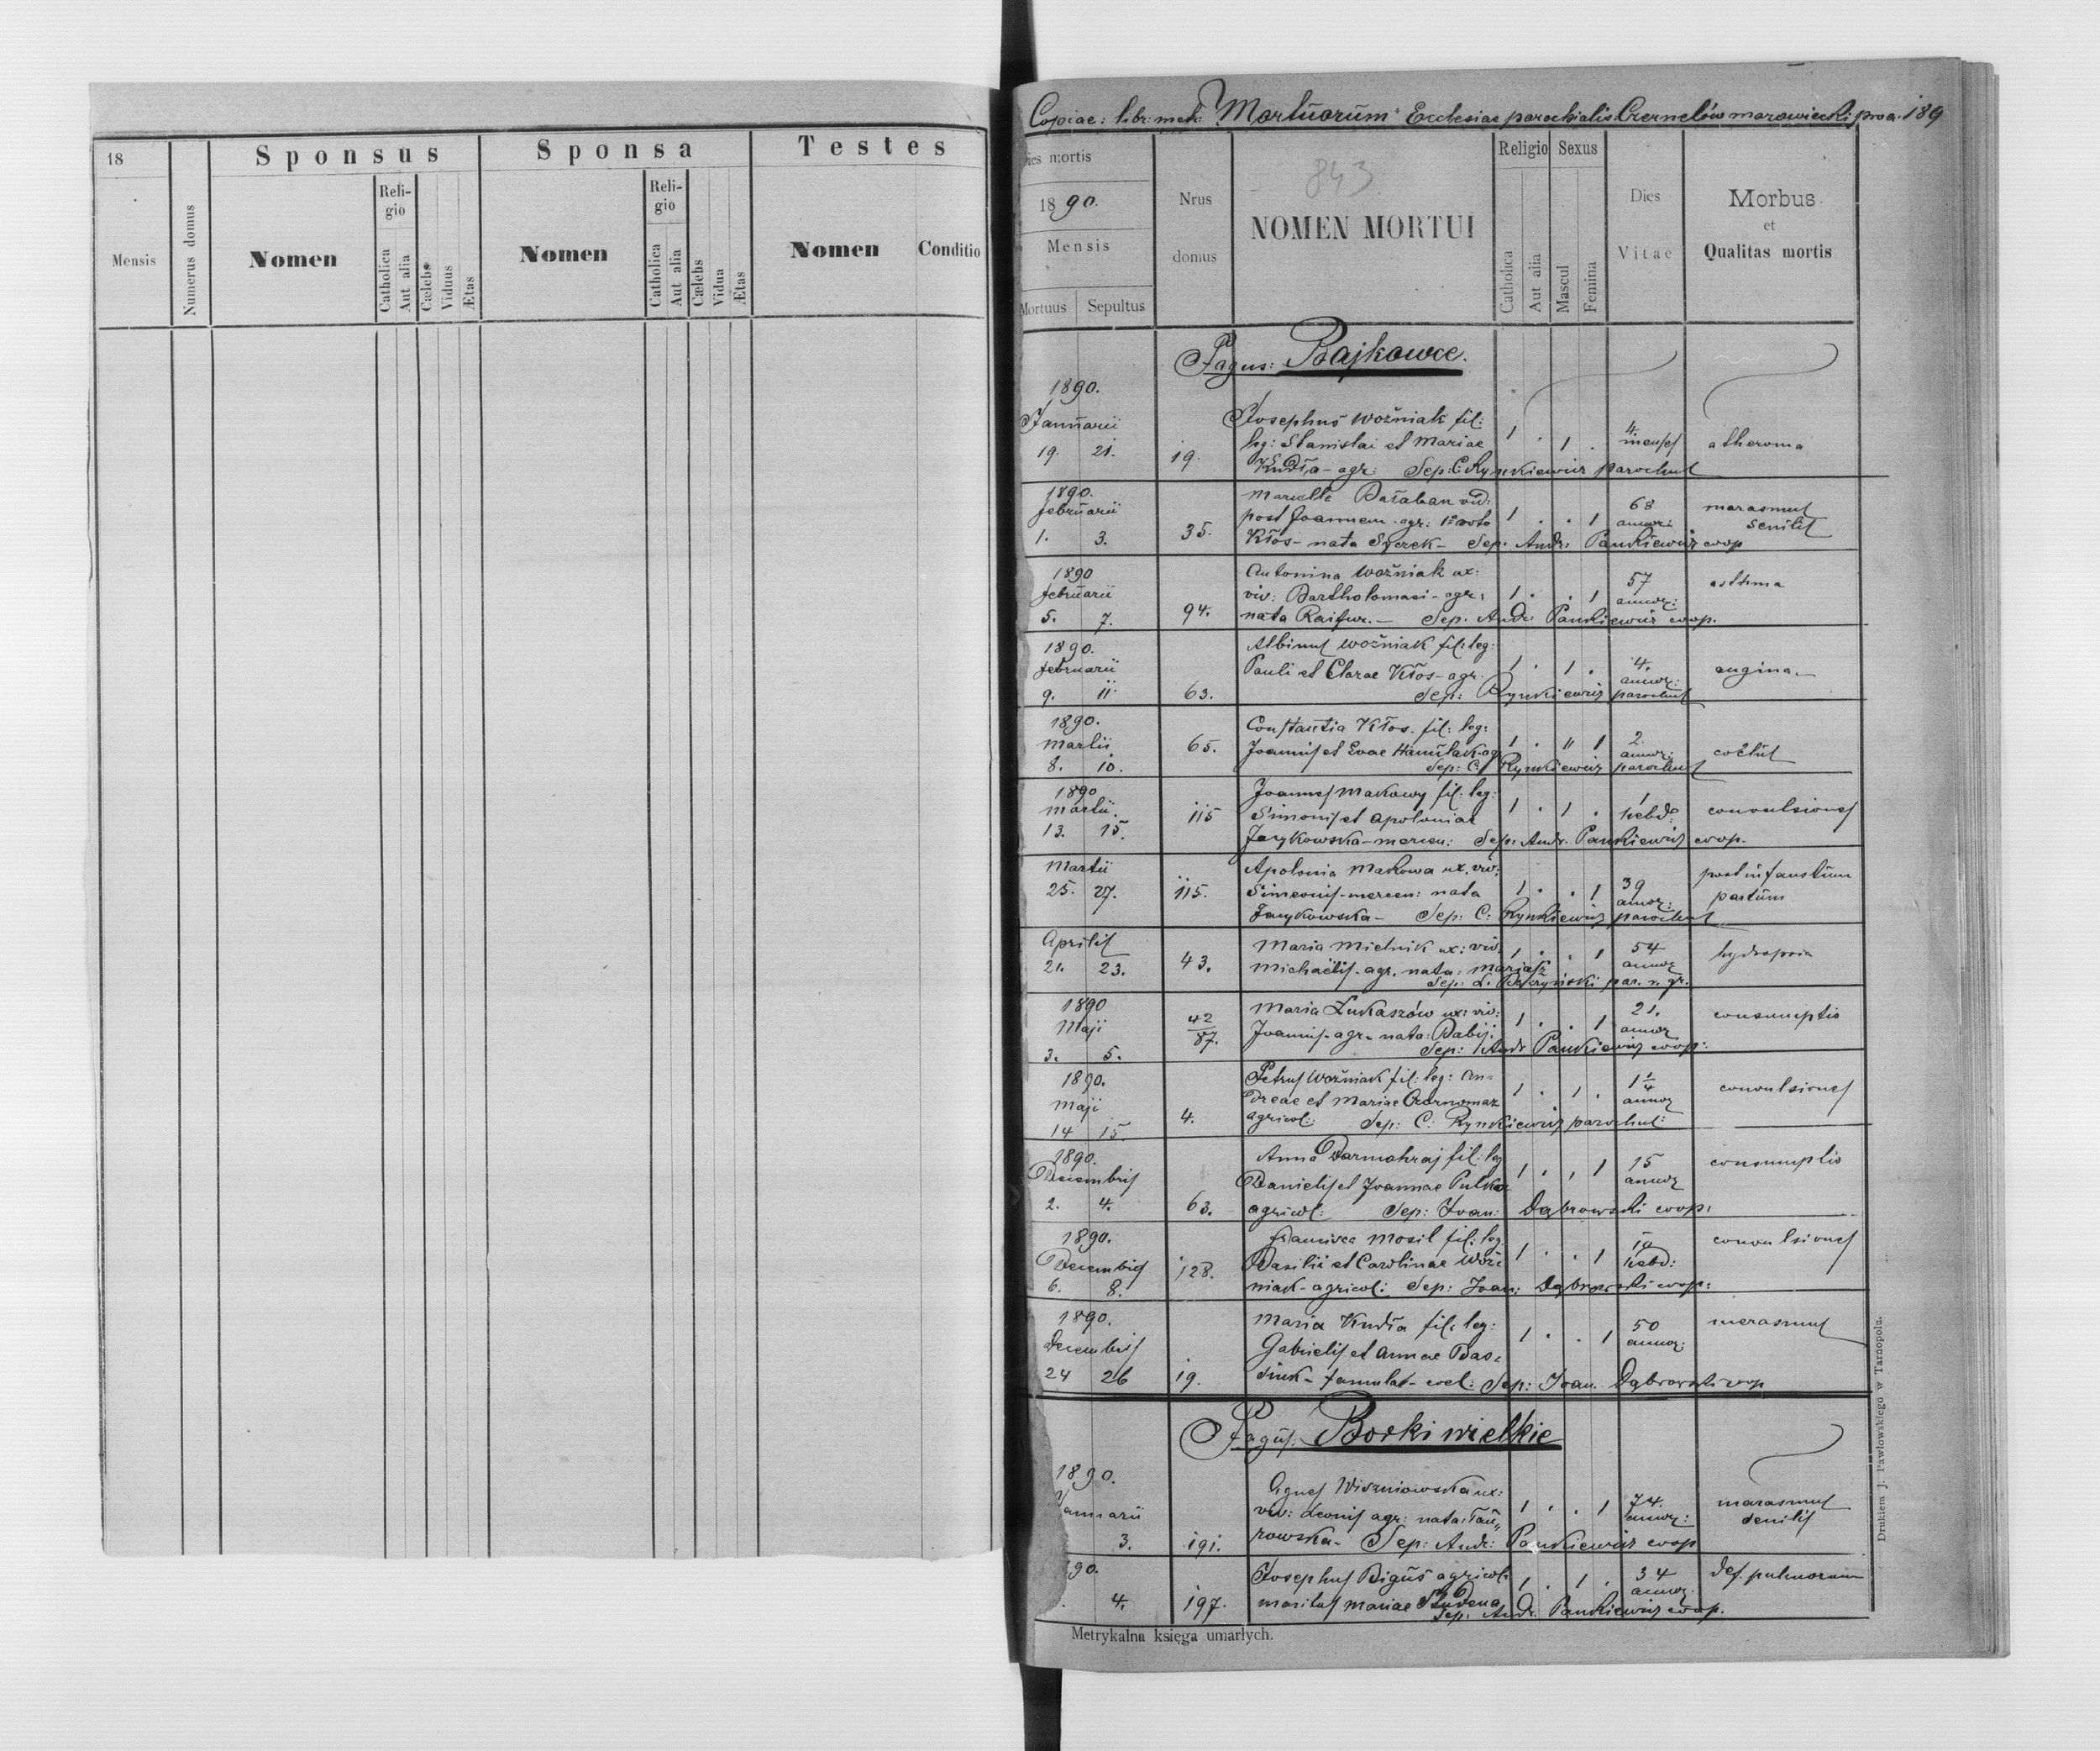 18
Sponsus
Sponsa
Testes
Mensis
Numerus domus
Nomen
Reli-
gio
Catholica
Aut alia
Cælebs
Viduus
Ætas
Nomen
Reli-
gio
Catholica
Aut alia
Cælebs
Vidua
Ætas
Nomen
Conditio
Copiae: libr: metr: Mortuorum Ecclesiae parochialis Czernelów mazowiecki pro a. 189
Dies mortis
1890.
Mensis
Mortuus Sepultus
Nrus
domus
843
NOMEN MORTUI
Religio Sexus
Catholica
Aut alia
Mascul
Femina
Dies
Vitae
Morbus
et
Qualitas mortis
Pagus: Bajkowce.
1890.
Januarii
19. 21. 19.
Josephus Woźniak fil:
leg: Stanislai et Mariae
Kudła - agr: Sep: C. Rynkiewicz parochus
1 . 1 . 4. menses atheroma
1890.
februarii
1. 3. 35.
Bałaban vid:
post Joannem - agr: 1º voto
Kłos - nata Syrek - Sep. Andr: Pankiewicz coop
1 . . 1 68 annor: marasmus
senilis
1890
februarii
5. 7. 94.
Antonina Woźniak ux:
viv: Bartholomaei - agr:
nata Raifur. - Sep. Andr Pankiewicz coop.
1 . . 1 57 annor: asthma
1890.
februarii
9. 11. 63.
Albinus Woźniak fil: leg:
Pauli et Clarae Kłos - agr.
Sep: Rynkiewicz parochus
1 . 1 . 4. annor: angina.
1890.
Martii
8. 10. 65.
Constantia Kłos. fil: leg:
Joannis et Evae Hanulak-ag
Sep: C. Rynkiewicz parochus
1 . " 1 2. annor:
1890
Martii.
13. 15. 115
Joannes Makowy fil: leg:
Simonis et Apoloniae
Jarykowska - mercen: Sep: Andr. Pankiewicz coop.
1 . 1 . 1 hebd: convulsiones
Martii
25. 27. 115.
Apolonia Makowa ux. viv:
Simeonis - mercen: nata
Jarykowska - Sep: C: Rynkiewicz parochus
1 . . 1 39 annor: post infaustum
partum
Aprilis
21. 23. 43.
Maria Mielnik ux: viv.
Michaelis - agr. nata:
Sep: par. r. gr.
1 . . 1 54 annor
1890
Maji
3. 5. 42/87.
Maria Łukaszów ux: viv:
Joannis - agr. nata: Babij.
Sep: Andr Pankiewicz coop:
1 . . 1 21. annor consumptio
1890.
Maji
14 15. 4.
Petrus Woźniak fil: leg: An-
dreae et Mariae Czarnomaz
agricol: Sep: C: Rynkiewicz parochus:
1 . 1 . 1 1/4 annor convulsiones
1890.
Decembris
2. 4. 63.
Anna Darmohraj fil: leg
Danielis et Joannae Pulka
agricol: Sep: Joan: Dąbrowski coop.
1 . . 1 15 annor consumptio
1890.
Decembris
6. 8. 128.
Francisca Mosil fil: leg
Basilii et Carolinae Woź-
niak - agricol: Sep: Joan: Dąbrowski coop:
1 . . 1 hebd: convulsiones
1890.
Decembris
24 26 19.
Maria Kudła fil: leg:
Gabrielis et Annae Bas-
famulat - coel: Sep: Joan. Dąbrowski coop
1 . . 1 50 annor: marasmus
Pagus: Borki wielkie
1890.
Januarii
3. 191.
Agnes Wiszniowska ux:
viv: Leonis agr: nata: Tau„
rowska - Sep: Andr: Pankiewicz coop
1 . . 1 74. annor: marasmus
senilis
90.
4. 197.
Josephus Biguś agricol:
maritus Mariae
Sep. Andr. Pankiewicz coop.
1 . 1 . 34 annor. def. pulmonum
Metrykalna księga umarłych.
Drukiem J. Pawłowskiego w Tarnopolu.